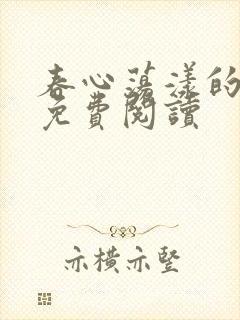 春心荡漾的
免費閱讀
亦橫亦豎